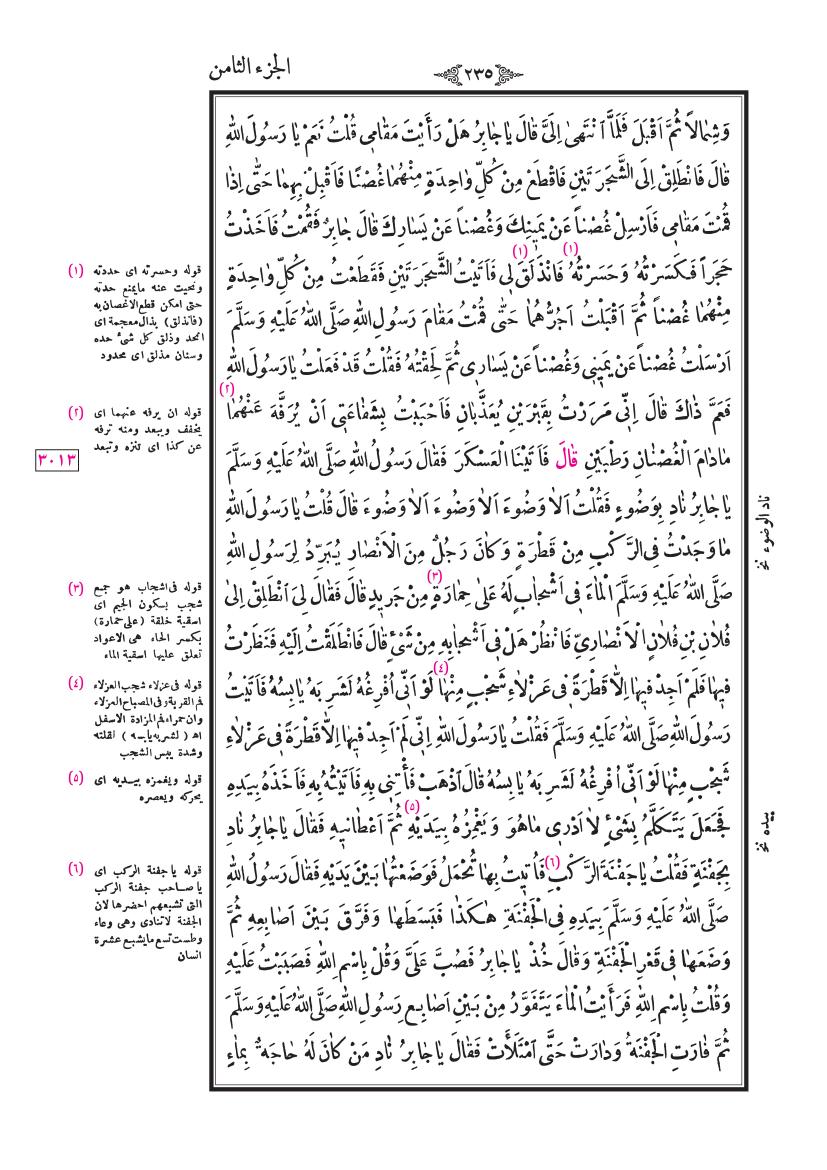 ٢٣٥
الجزء الثامن
وَشِمَالاً ثُمَّ اَقْبَلَ فَلَمَّا اَنْتَهىٰ اِلَىَّ قَالَ يَا جَابِرُ هَلْ رَأَيْتَ مَقَامِى قُلْتُ نَعَمْ يَا رَسُولَ اللهِ
قَالَ فَانْطَلِقْ اِلَى الشَّجَرَ تَيْنِ فَاقْطَعْ مِنْ كُلِّ وَاحِدَةٍ مِنْهُمَا غُصْنًا فَاَقْبِلْ بِهِمَا حَتّٰى اِذَا
قُمْتَ مَقَامِى فَاَرْسِلْ غُصْناً عَنْ يَمِينِكَ وَغُصْناً عَنْ يَسَارِكَ قَالَ جَابِرٌ فَقُمْتُ فَاَخَذْتُ
حَجَراً فَكَسَرْتُهُ وَحَسَرْتُهُ (١) فَانْذَلَقَ (١) لِى فَاَتَيْتُ الشَّجَرَ تَيْنِ فَقَطَعْتُ مِنْ كُلِّ وَاحِدَةٍ
مِنْهُمَا غُصْناً ثُمَّ اَقْبَلْتُ اَجُرُّهُمَا حَتّٰى قُمْتُ مَقَامَ رَسُولِ اللهِ صَلَّى اللهُ عَلَيْهِ وَسَلَّمَ
اَرْسَلْتُ غُصْناً عَنْ يَمِينِى وَغُصْناً عَنْ يَسَارِى ثُمَّ لَحِقْتُهُ فَقُلْتُ قَدْ فَعَلْتُ يَا رَسُولَ اللهِ
فَعَمَّ ذَاكَ قَالَ اِنِّى مَرَرْتُ بِقَبْرَيْنِ يُعَذَّبَانِ فَاَحْبَبْتُ بِشَفَاعَتِى اَنْ يُرَفَّهَ عَنْهُمَا (٢)
مَادَامَ الْغُصْنَانِ رَطْبَيْنِ قَالَ فَاَتَيْنَا الْعَسْكَرَ فَقَالَ رَسُولُ اللهِ صَلَّى اللهُ عَلَيْهِ وَسَلَّمَ
يَا جَابِرُ نَادِ بِوَضُوءٍ فَقُلْتُ اَلَا وَضُوءَ اَلَا وَضُوءَ اَلَا وَضُوءَ قَالَ قُلْتُ يَا رَسُولَ اللهِ
مَا وَجَدْتُ فِى الرَّكْبِ مِنْ قَطْرَةٍ وَكَانَ رَجُلٌ مِنَ الْاَنْصَارِ يُبَرِّدُ لِرَسُولِ اللهِ
صَلَّى اللهُ عَلَيْهِ وَسَلَّمَ الْمَاءَ فِى اَشْجَابٍ لَهُ عَلىٰ حِمَارَةٍ (٣) مِنْ جَرِيدٍ قَالَ فَقَالَ لِىَ انْطَلِقْ اِلىٰ
فُلَانِ بْنِ فُلَانٍ الْاَنْصَارِىِّ فَانْظُرْ هَلْ فِى اَشْجَابِهِ مِنْ شَىْءٍ قَالَ فَانْطَلَقْتُ اِلَيْهِ فَنَظَرْتُ
فِيهَا فَلَمْ اَجِدْ فِيهَا اِلَّا قَطْرَةً فِى عَزْلَاءِ شَجْبٍ مِنْهَا (٤) لَوْ اَنِّى اُفْرِغُهُ لَشَرِ بَهُ يَابِسُهُ فَاَتَيْتُ
رَسُولَ اللهِ صَلَّى اللهُ عَلَيْهِ وَسَلَّمَ فَقُلْتُ يَا رَسُولَ اللهِ اِنِّى لَمْ اَجِدْ فِيهَا اِلَّا قَطْرَةً فِى عَزْلَاءِ
شَجْبٍ مِنْهَا لَوْ اَنِّى اُفْرِغُهُ لَشَرِ بَهُ يَابِسُهُ قَالَ اَذْهَبْ فَأْتِنِى بِهِ فَاَتَيْتُهُ بِهِ فَاَخَذَهُ بِيَدِهِ
فَجَعَلَ يَتَكَلَّمُ بِشَىْءٍ لَا اَدْرِى مَا هُوَ وَيَغْمِزُهُ بِيَدَيْهِ (٥) ثُمَّ اَعْطَانِيهِ فَقَالَ يَا جَابِرُ نَادِ
بِجَفْنَةٍ فَقُلْتُ يَا جَفْنَةَ الرَّكْبِ (٦) فَاُتِيتُ بِهَا تُحْمَلُ فَوَضَعْتُهَا بَيْنَ يَدَيْهِ فَقَالَ رَسُولُ اللهِ
صَلَّى اللهُ عَلَيْهِ وَسَلَّمَ بِيَدِهِ فِى الْجَفْنَةِ هٰكَذَا فَبَسَطَهَا وَفَرَّقَ بَيْنَ اَصَابِعِهِ ثُمَّ
وَضَعَهَا فِى قَعْرِ الْجَفْنَةِ وَقَالَ خُذْ يَا جَابِرُ فَصُبَّ عَلَىَّ وَقُلْ بِاسْمِ اللهِ فَصَبَبْتُ عَلَيْهِ
وَقُلْتُ بِاسْمِ اللهِ فَرَأَيْتُ الْمَاءَ يَتَفَوَّرُ مِنْ بَيْنِ اَصَابِعِ رَسُولِ اللهِ صَلَّى اللهُ عَلَيْهِ وَسَلَّمَ
ثُمَّ فَارَتِ الْجَفْنَةُ وَدَارَتْ حَتَّى اَمْتَلَأَتْ فَقَالَ يَا جَابِرُ نَادِ مَنْ كَانَ لَهُ حَاجَةٌ بِمَاءٍ
(١) قوله وحسرته اى حددته
ونحيت عنه مايمنع حدته
حتى امكن قطع الاغصان به
(فانذلق) بذال معجمة اى
انحد وذلق كل شئ حده
وسنان مذلق اى محدود
(٢) قوله ان يرفه عنهما اى
يخفف ويبعد ومنه ترفه
عن كذا اى تنزه وتبعد
٣٠١٣
(٣) قوله فى اشجاب هو جمع
شجب بسكون الجيم اى
اسقية خلقة (على حمارة)
بكسر الحاء هى الاعواد
تعلق عليها اسقية الماء
(٤) قوله فى عزلاء شجب العزلاء
فم القربة وفى المصباح العزلاء
وزان حمراء فم المزادة الاسفل
اه (لشربه يابسه) لقلته
وشدة يبس الشجب
(٥) قوله ويغمزه بيديه اى
يحركه ويعصره
(٦) قوله يا جفنة الركب اى
يا صاحب جفنة الركب
التى تشبعهم احضرها لان
الجفنة لاتنادى وهى وعاء
وطست تسع مايشبع عشرة
انسان
ناد الوضوء نخ
بيده نخ